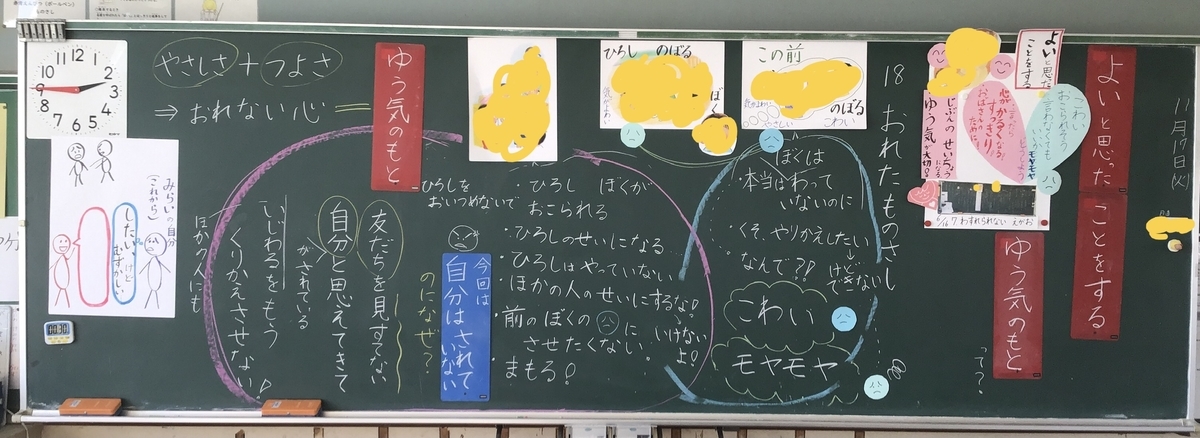 11月17日(火)
よいと思った
ことをする
ゆう気のもと
って?
よいと思った
ことをする
こわい
おこられそう
言わなくても
いいか
モヤモヤ
心が
かるくなる!
すっきり
ゆう気が大切
6/16 7 わすれられない えがお
18 おれたものさし
この前
のぼる
こわい
やさしい
ひろし のぼる
ぼく
ぼくは
・本当はわって
いないのに
・くそ、やりかえしたい
↓けど
できない
なんで?!
こわい
モヤモヤ
・ひろし ぼくが
おこられる
・ひろしのせいになる
・ひろしはやっていない
・ほかの人のせいにするな!
いけない
よ!
・前のぼくの
に
させたくない
・まもる!
ひろしを
おいつめないで
今回は
自分はされて
いない
のになぜ?
ゆう気のもと
やさしさ+つよさ
⇒おれない心=
友だちを見すてない
自分と思えてきて
がされている
いじわるをもう
くりかえさせない!
ほかの人にも
12
1
2
3
4
5
6
7
8
9
10
11
みらいの自分
(これから)
したい、けど
むずかしい